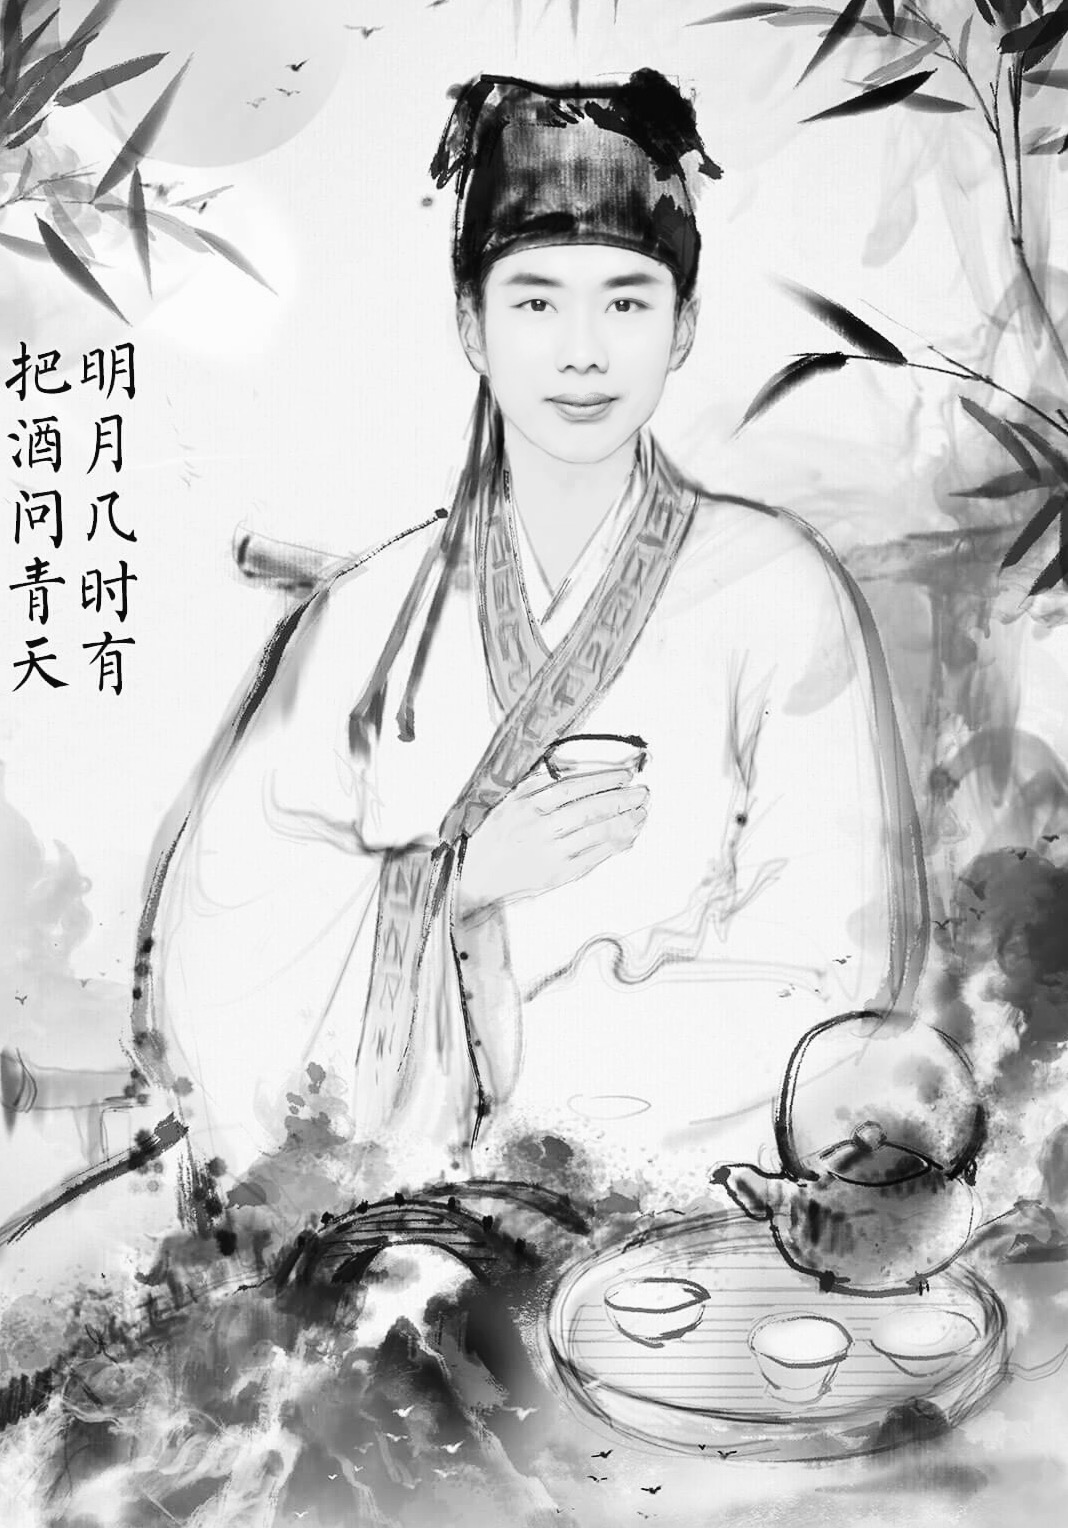 明月几时有
把酒问青天